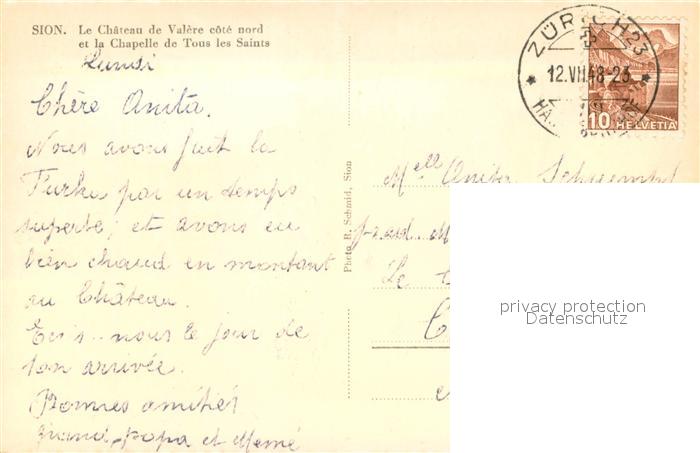 SION. Le Château de Valère côté nord
et la Chapelle de Tous les Saints
Lundi
Chère Anita.
Nous avons fait la
Furka par un temps
superbe, et avons eu
bien chaud en montant
au Château.
Ecris-nous le jour de
ton arrivée.
Bonnes amitiés
grand-papa et Mémé
Photo R. Schmid, Sion
ZÜRICH 23
12.VII.48-23
10 HELVETIA
Mlle Anita
Le
privacy protection
Datenschutz